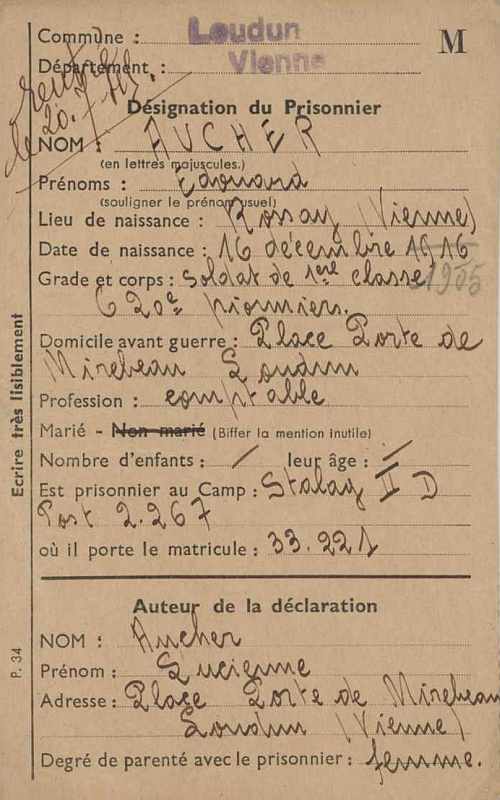 Commune : Loudun
M
Département : Vienne
le 20.
Désignation du Prisonnier
NOM : AUCHER
(en lettres majuscules.)
Prénoms : Edouard
(souligner le prénom usuel)
Lieu de naissance : Rossay (Vienne)
Date de naissance : 16 décembre 1916
1905
Grade et corps : Soldat de 1ère classe
620e pionniers.
Domicile avant guerre : Place Porte de
Mirebeau Loudun
Profession : comptable
Marié - Non marié (Biffer la mention inutile)
Nombre d'enfants : / leur âge : /
Est prisonnier au Camp : Stalag II D
Post 2.267
où il porte le matricule : 33.221
Auteur de la déclaration
NOM : Aucher
Prénom : Lucienne
Adresse : Place Porte de Mirebeau
Loudun (Vienne)
Degré de parenté avec le prisonnier : femme.
Ecrire très lisiblement
P. 34